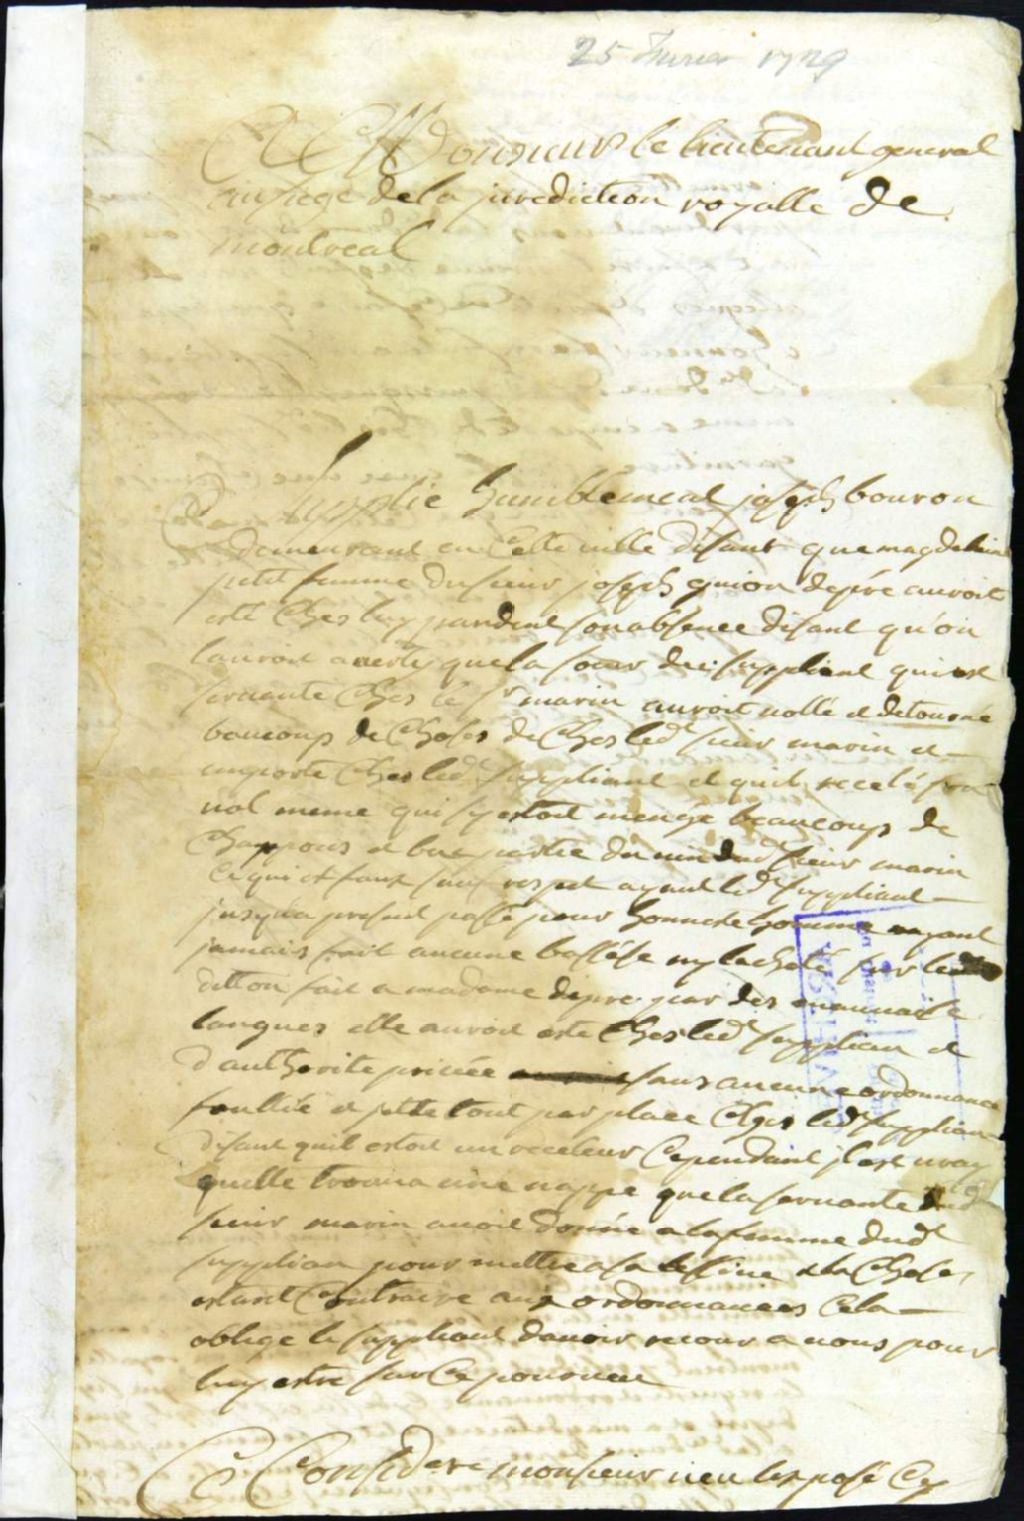 25 Fevrier 1729
A Monsieur le lieutenant general
au siege de la jurediction royalle de
montreal
Supplie humblement joseph bouron
demeurant en cette ville disant que magdelaine
petit femme du sieur joseph guion depré auroit
esté Ches luy pandant son absence disant qu'on
lauroit avertÿ que la soeur du suppliant qui est
servante Ches le sr marin auroit vollé et detourné
baucoup de Choses de Ches led sieur marin et
emporté Ches led suppliant et quil receloit son
vol meme qui sy estoit mengé beaucoups de
Chappons et bue partie du vin dud sieur marin
Ce qui est faux sauf respet ayant led suppliant
jusqua present passé pour honneste homme nayant
jamais fait aucune bassesse ny lacheté sur le
ditton fait a madame depré par des mauvaise
langues elle auroit esté Ches led supplian et
d'authorité privée sans aucune ordonnance
fouillé et jetté tout par place Ches led supplian
disant quil estoit un receleur Cependant jl est vray
quelle trouva une nappe que la servante dud
sieur marin avoit donnée a la femme dud
supplian pour mettre a la lessive et la Chose
estant Contraire aux ordonnances Cela
oblige le suppliant davoir recour a vous pour
luy estre sur Ce pourveu
Ce Consideré monsieur veu lexposé Cy